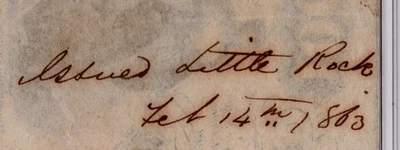 Issued Little Rock
Feb 14th 1863